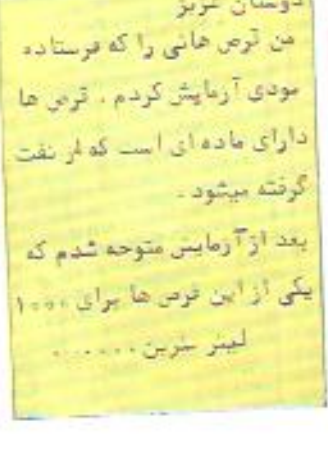 دوستان عزیز
من ترص هائی را که فرستاده
بودی آزمایش کردم . ترص ها
دارای ماده ای است که از نفت
گرفته میشود .
بعد از آزمایش متوجه شدم که
یکی از این قرص ها برای ۱۰۰۰
لیتر بنزین . . . . . .